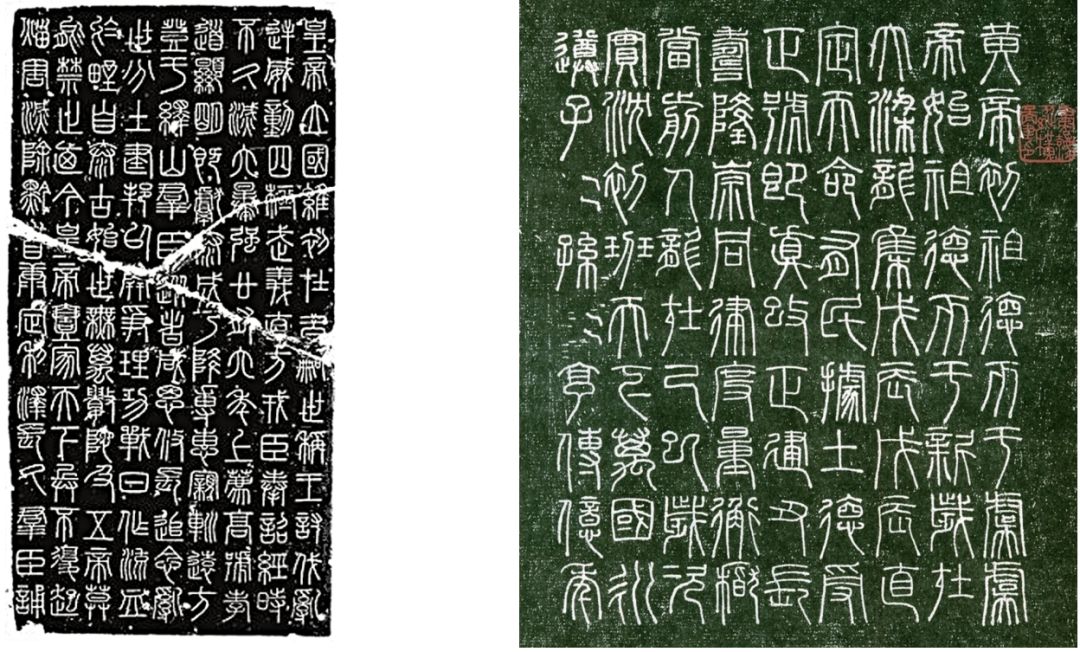 皇帝立國維初在昔嗣世稱王討伐亂
逆威動四極武義直方戎臣奉詔經時
不久滅六暴強廿有六年上薦高號孝
道顯明既獻泰成乃降專惠親巡遠方
登于繹山羣臣從者咸思攸長追念亂
世分土建邦以開爭理功戰日作流血
於野自泰古始世無萬數陀及五帝莫
能禁止迺今皇帝壹家天下兵不復起
災害滅除黔首康定利澤長久羣臣誦
黃帝初祖德帀于虞虞
帝始祖德帀于新歲在
大梁龍集戊辰戊辰直
定天命有民據土德受
正號即真改正建丑長
壽隆崇同律度量衡稽
當前人龍在己巳歲次
實沈初班天下萬國永
遵子〻孫〻享傳億年